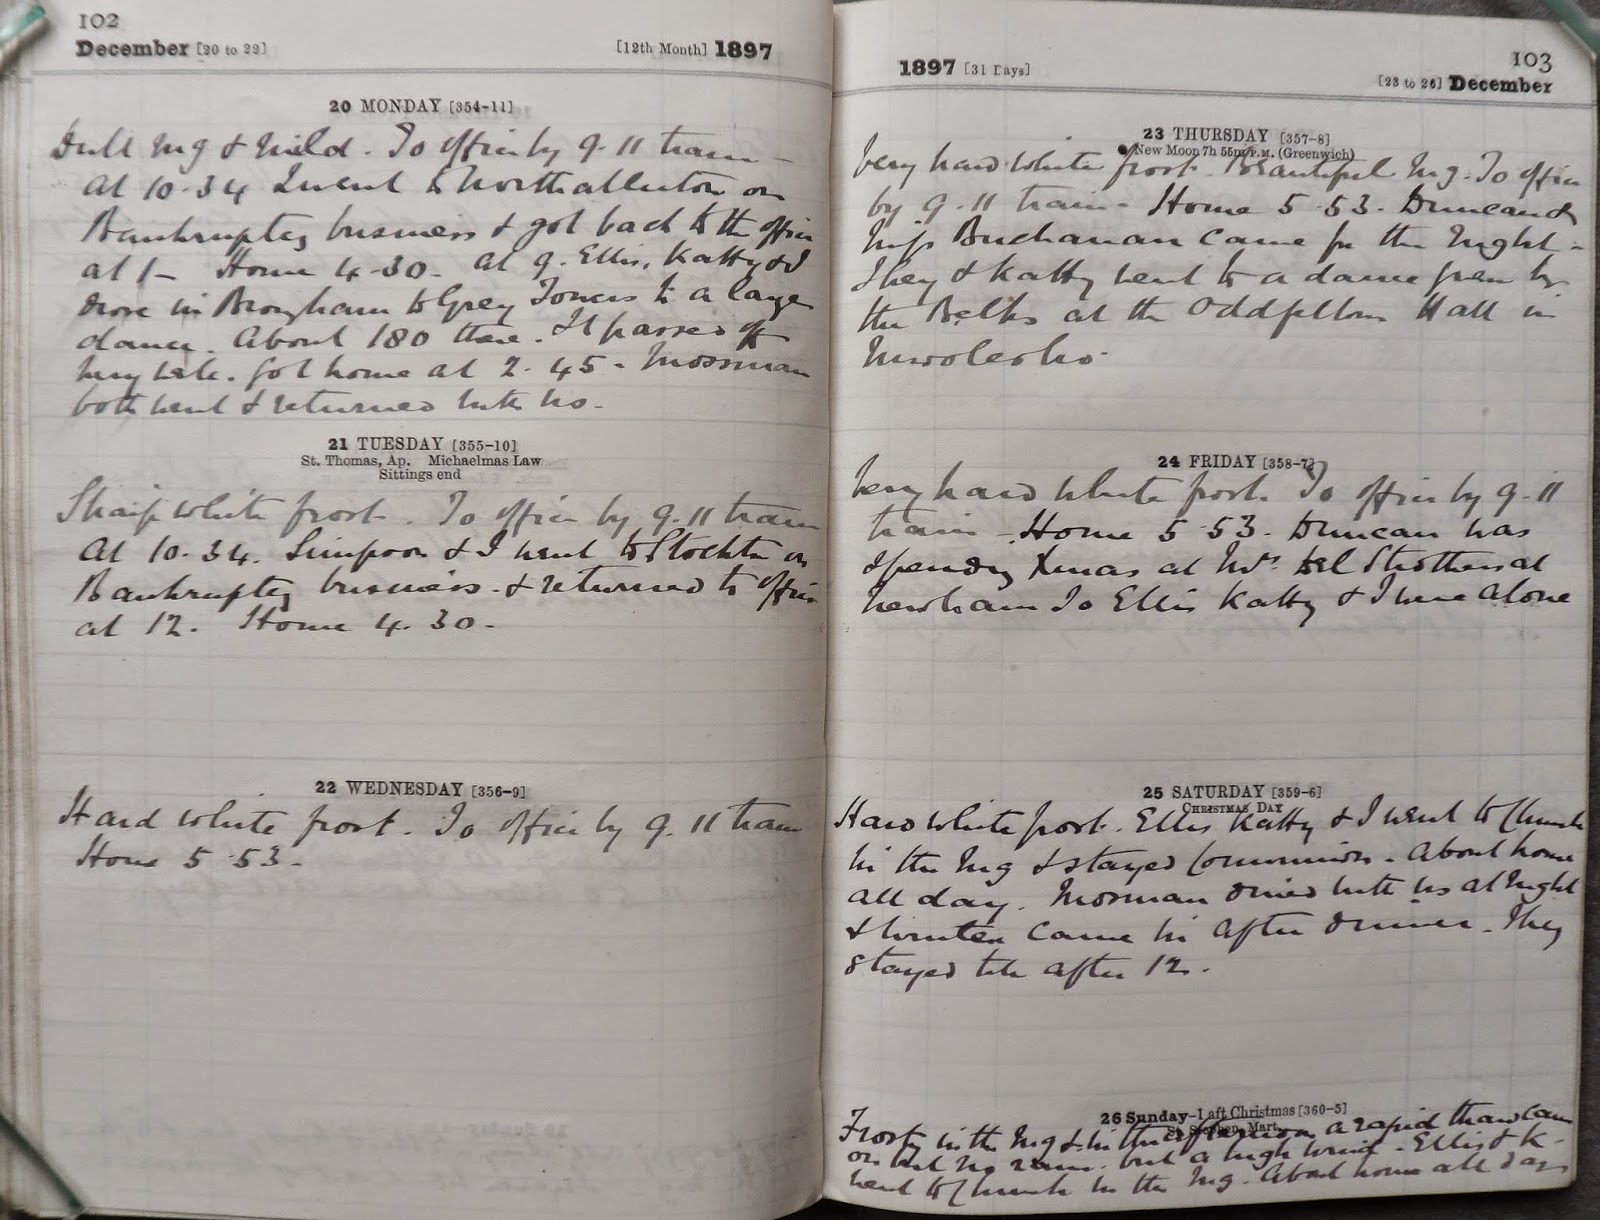 102
December [20 to 22] [12th Month] 1897
20 MONDAY [354-11]
Dull Mg & Mild. To Office by 9.11 train -
At 10.34 I went to Northallerton on
Bankruptcy business & got back to the Office
at 1 - Home 4.30. At 9. Ellis, Katty & I
drove in Brougham to Grey Towers to a large
dance. About 180 there. It passed off
very well. Got home at 2.45 - Mossman
both went & returned with us.
21 TUESDAY [355-10]
St. Thomas, Ap. Michaelmas Law
Sittings end
Sharp white frost. To Office by 9.11 train
At 10.34. Simpson & I went to Stockton on
Bankruptcy business. & returned to Office
at 12. Home 4.30.
22 WEDNESDAY [356-9]
Hard white frost. To Office by 9.11 train
Home 5.53.
103
1897 [31 Days] [23 to 26] December
23 THURSDAY [357-8]
New Moon 7h 55m P.M. (Greenwich)
Very hard white frost. Beautiful Mg. To Office
by 9.11 train - Home 5.53. Duncan &
Miss Buchanan came for the Night -
They & Katty went to a dance given by
the Belks at the Oddfellows Hall in
24 FRIDAY [358-7]
Very hard white frost. To Office by 9.11
train - Home 5.53. Duncan was
spending Xmas at Mr. Del Strothers at
Newham So Ellis Katty & I were alone
25 SATURDAY [359-6]
CHRISTMAS DAY
Hard white frost. Ellis Katty & I went to Church
in the Mg & stayed Communion. About home
all day. Mosman dined with us at Night
& came in after dinner. They
stayed till after 12.
26 Sunday-1 aft Christmas [360-5]
St. Stephen, Mart.
Frost in the Mg & in the afternoon a rapid thaw came
on but no rain. but a high wind. Ellis & K.
went to Church in the Mg. About home all day